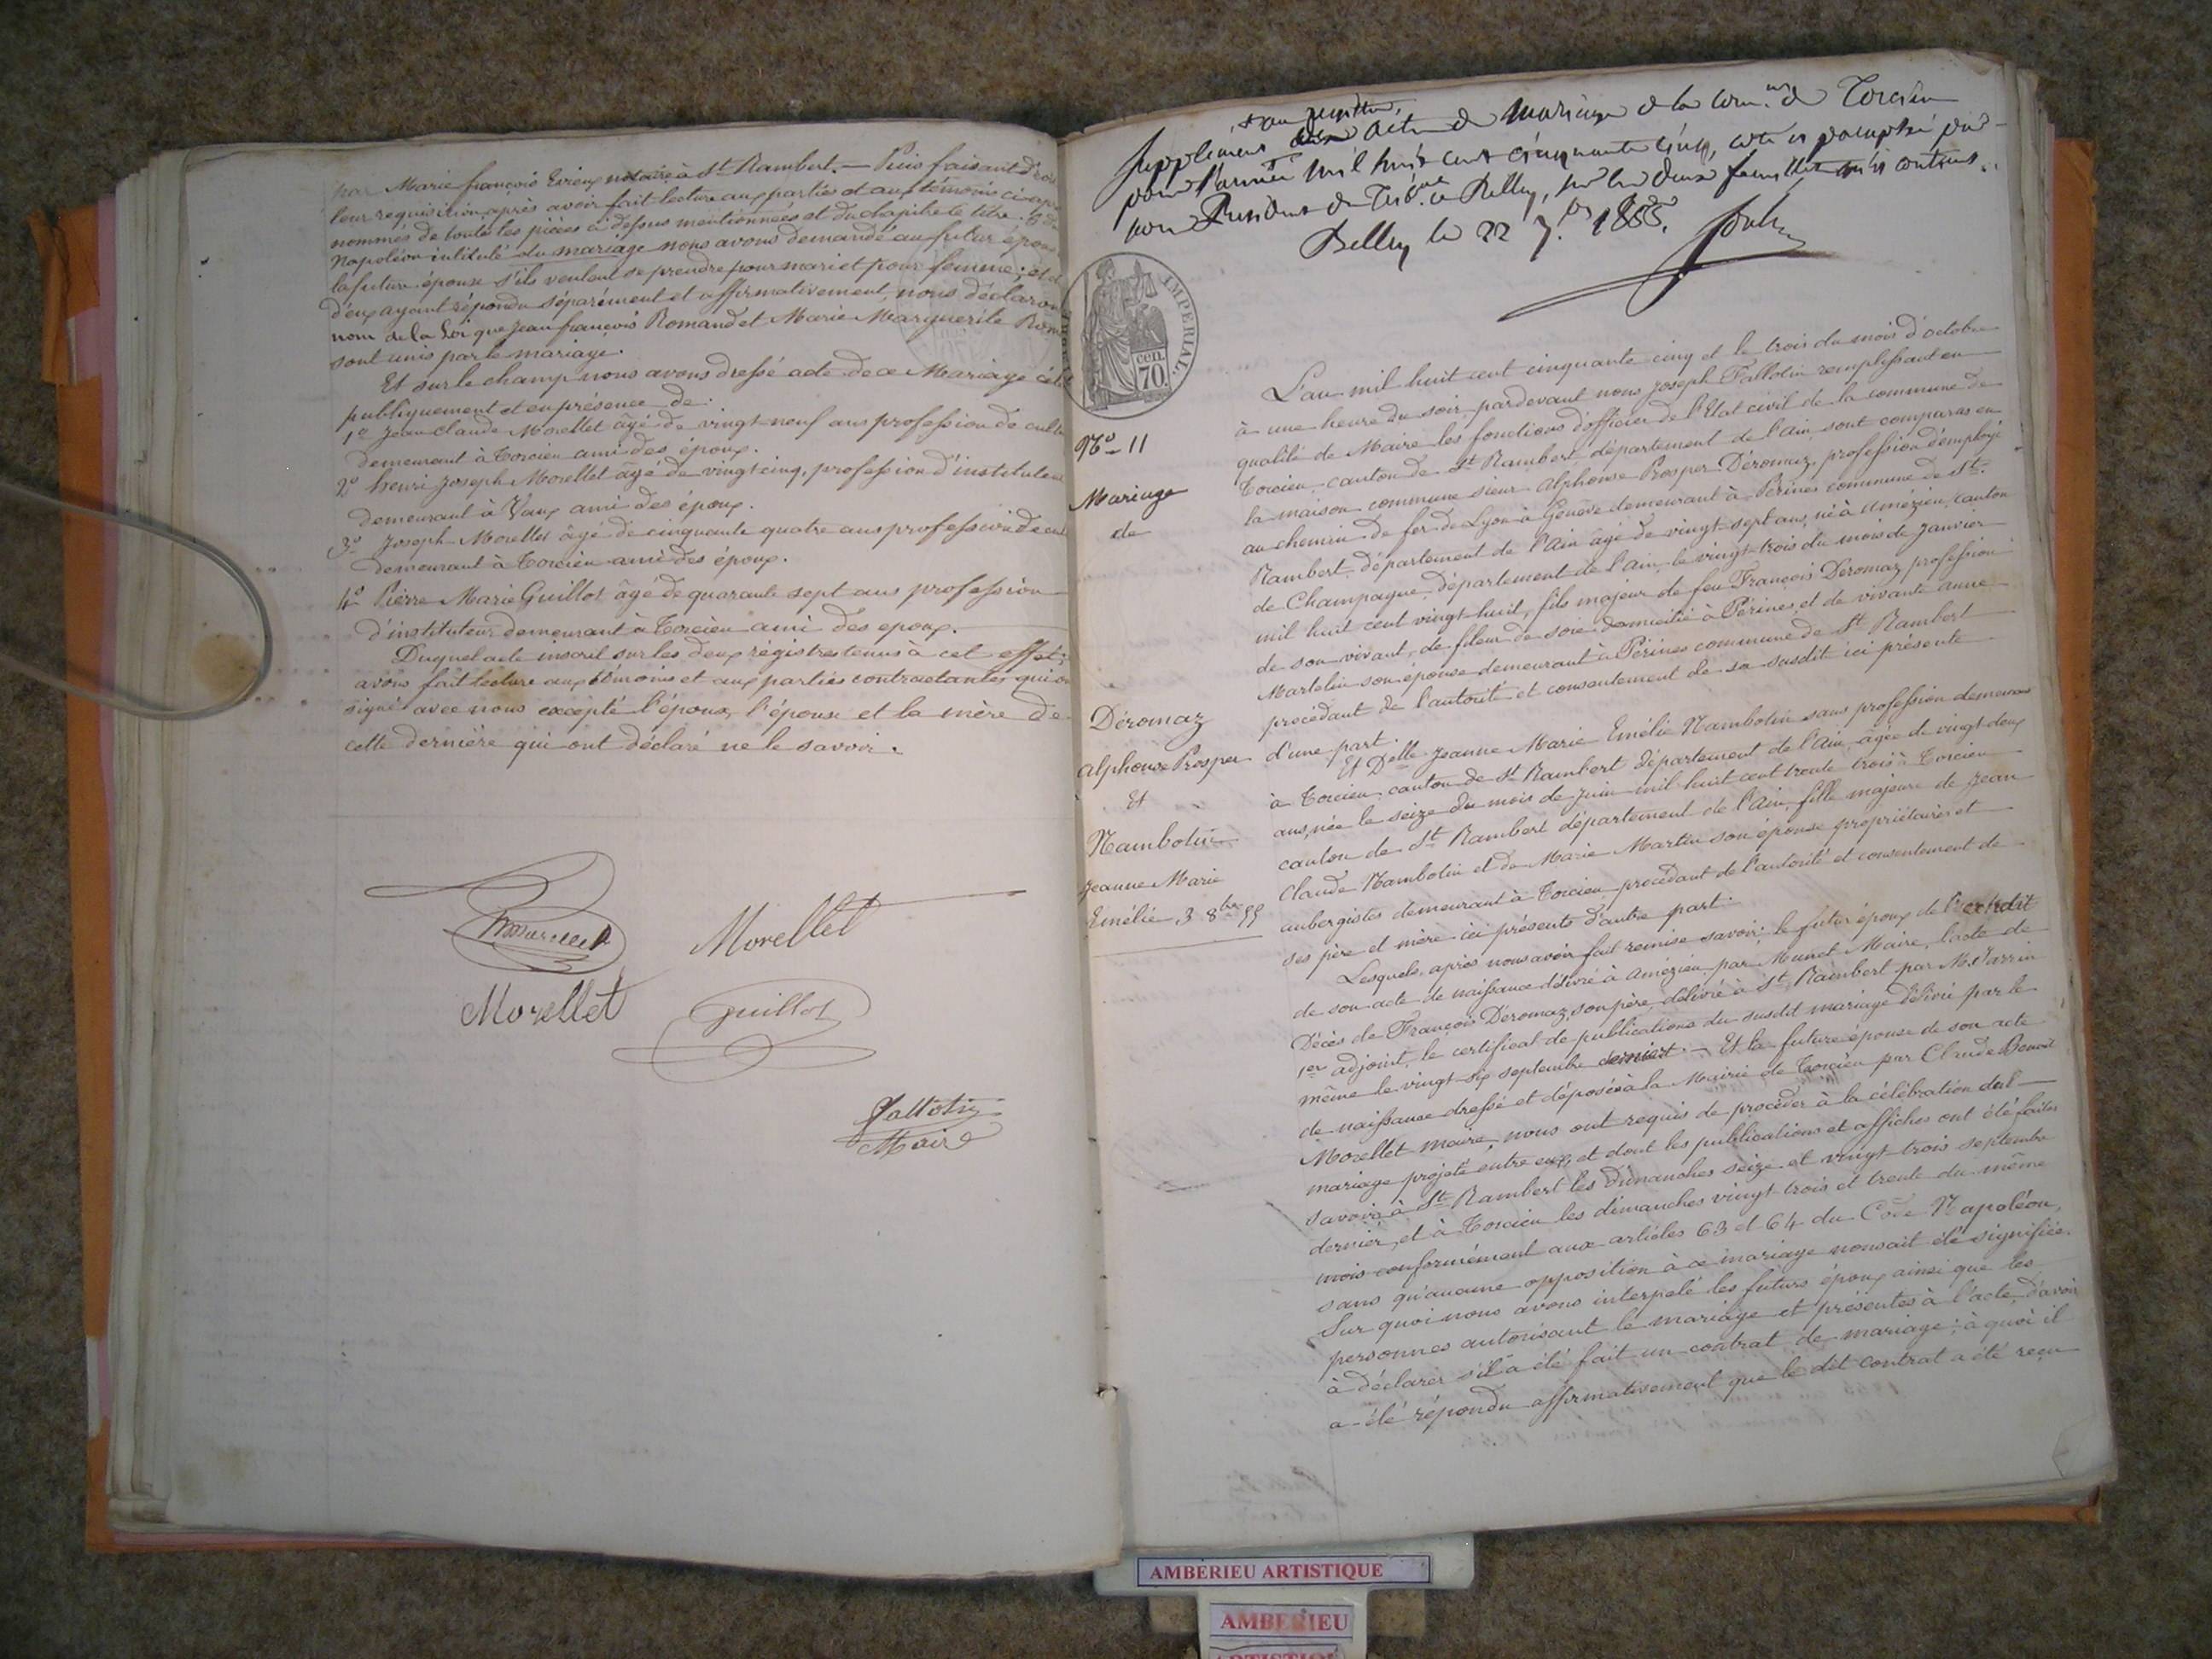 par Marie françois Evieux notaire à St Rambert. — Puis faisant droit
leur requisition, après avoir fait lecture aux parties et aux témoins ci-après
nommés de toutes les pièces ci dessus mentionnées et du chapitre 6 titre 5 du
Napoléon intitulé du mariage nous avons demandé au futur époux
la future épouse s'ils veulent se prendre pour mari et pour femme; et
d'eux ayant répondu séparément et affirmativement, nous déclarons
nom de la Loi que Jean françois Romand et Marie Marguerite
sont unis par le mariage.
Et sur le champ nous avons dressé acte de ce Mariage
publiquement et en présence de:
1o Jean Claude Morellet âgé de vingt-neuf ans profession de
demeurant à Torcieu ami des époux.
2o henri Joseph Morellet âgé de vingt cinq, profession d'instituteur
demeurant à Vaux ami des époux.
3o Joseph Morellet âgé de cinquante quatre ans profession de
demeurant à Torcieu ami des époux.
4o Pierre Marie Guillot âgé de quarante sept ans profession
d'instituteur demeurant à Torcieu ami des epoux.
Duquel acte inscrit sur les deux registres tenus à cet effet,
avons fait lecture aux témoins et aux parties contractantes qui
signé avec nous excepté l'époux, l'épouse et la mère de
cette dernière qui ont déclaré ne le savoir.
Morellet
Morellet
Guillot
Tallotin
Maire
Supplément au registre des actes de Mariage de la comne de Torcieu
pour l'année Mil huit cent cinquante cinq, coté et paraphé par
nous Président du Tribal de Belley, sur les deux feuillets
Belley le 22 7bre 1855.
IMPERIAL
cen.
70.
No 11
Mariage
de
Déromaz
Alphonse Prosper
Et
Nambotin
Jeanne Marie
Emélie, 3 8bre 55
L'an mil huit cent cinquante cinq et le trois du mois d'octobre
à une heure du soir, pardevant nous Joseph Tallotin remplissant en
qualité de Maire les fonctions d'officier de l'Etat civil de la commune de
Torcieu, canton de St Rambert, département de l'ain, sont comparus en
la maison commune sieur Alphonse Prosper Déromaz, profession d'employé
au chemin de fer de Lyon à Genève demeurant à Pérines commune de St.
Rambert, département de l'ain âgé de vingt-sept ans, né à Amézieu, canton
de Champagne, département de l'ain, le vingt-trois du mois de Janvier
mil huit cent vingt-huit, fils majeur de feu François Deromaz profession
de son vivant, de fileur de soie domicilié à Pérines, et de vivante anne
Martelin son épouse demeurant à Pérines commune de St Rambert
procédant de l'autorité et consentement de sa susdit ici présente
d'une part.
Et Delle Jeanne Marie Emélie Nambotin sans profession demeurant
à Torcieu, canton de St Rambert département de l'Ain, âgée de vingt-deux
ans, née le seize du mois de Juin mil huit cent trente trois à Torcieu
canton de St Rambert département de l'Ain, fille majeure de Jean
Claude Nambotin et de Marie Martin son épouse propriétaires et
aubergistes demeurant à Torcieu procédant de l'autorité et consentement de
ses père et mère ici présents d'autre part.
Lesquels, après nous avoir fait remise savoir: le futur époux de l'extrait
de son acte de naissance délivré à Amézieu par Munet Maire, l'acte de
Décès de François Deromaz, son père, délivré à St. Rambert par M. Sarrin
1er adjoint, le certificat de publications du susdit mariage délivré par le
même le vingt-six septembre dernier. — Et la future épouse de son acte
de naissance dressé et déposé à la Mairie de Torcieu par Claude Benoit
Morellet maire, nous ont requis de procéder à la célébration du
mariage projeté entre eux, et dont les publications et affiches ont été faites
savoir: à St Rambert les Dimanches seize et vingt-trois septembre
dernier, et à Torcieu les dimanches vingt-trois et trente du même
mois conformément aux articles 63 et 64 du Code Napoléon,
sans qu'aucune opposition à ce mariage nous ait été signifiée.
Sur quoi nous avons interpelé les futurs époux ainsi que les
personnes autorisant le mariage et présentes à l'acte, d'avoir
à déclarer s'il a été fait un contrat de mariage; à quoi il
a été répondu affirmativement que le dit contrat a été reçu
AMBERIEU ARTISTIQUE
AMBERIEU
ARTISTIQUE